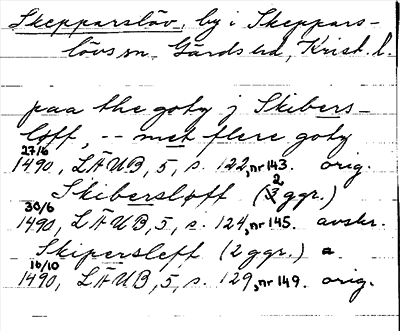 Skepparslöv, by i Skeppars-
lövs sn. Gärds hd, Krist. l.
paa the gotz j Skibers-
löff, -- met flere gotz
27/6
1490, LÄUB, 5, s. 122, nr 143. orig.
Skibersløff (2 ggr.)
30/6
1490, LÄUB, 5, s. 124, nr 145. avskr.
Skipersleff (2 ggr.)
16/10
1490, LÄUB, 5, s. 129, nr 149. orig.